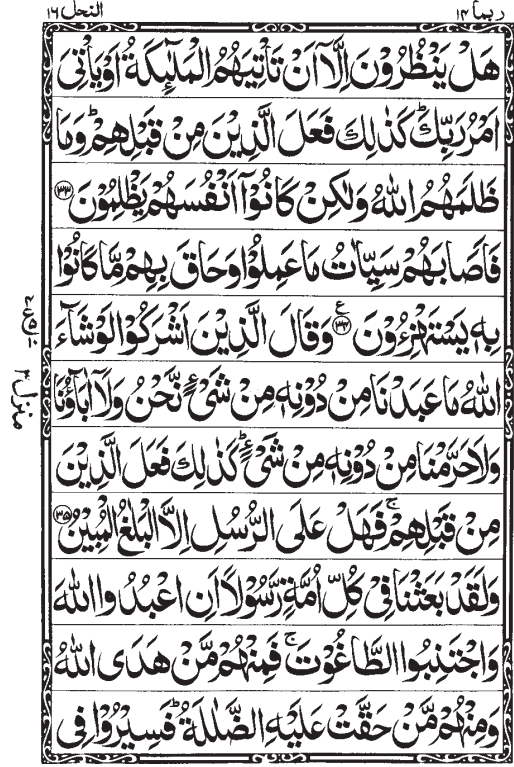 ربما ۱۴
النحل ۱۶
هَلْ يَنْظُرُوْنَ اِلَّاۤ اَنْ تَاْتِيَهُمُ الْمَلٰٓئِكَةُ اَوْ يَاْتِىَ
اَمْرُ رَبِّكَ ؕ كَذٰلِكَ فَعَلَ الَّذِيْنَ مِنْ قَبْلِهِمْ ؕ وَمَا
ظَلَمَهُمُ اللّٰهُ وَلٰكِنْ كَانُوْۤا اَنْفُسَهُمْ يَظْلِمُوْنَ ۳۳
فَاَصَابَهُمْ سَيِّاٰتُ مَا عَمِلُوْا وَحَاقَ بِهِمْ مَّا كَانُوْا
بِهٖ يَسْتَهْزِءُوْنَ ۳۴ ع وَقَالَ الَّذِيْنَ اَشْرَكُوْا لَوْ شَآءَ
اللّٰهُ مَا عَبَدْنَا مِنْ دُوْنِهٖ مِنْ شَىْءٍ نَّحْنُ وَلَاۤ اٰبَآؤُنَا
وَلَا حَرَّمْنَا مِنْ دُوْنِهٖ مِنْ شَىْءٍ ؕ كَذٰلِكَ فَعَلَ الَّذِيْنَ
مِنْ قَبْلِهِمْ ۚ فَهَلْ عَلَى الرُّسُلِ اِلَّا الْبَلٰغُ الْمُبِيْنُ ۳۵
وَلَقَدْ بَعَثْنَا فِىْ كُلِّ اُمَّةٍ رَّسُوْلًا اَنِ اعْبُدُوا اللّٰهَ
وَاجْتَنِبُوا الطَّاغُوْتَ ۚ فَمِنْهُمْ مَّنْ هَدَى اللّٰهُ
وَمِنْهُمْ مَّنْ حَقَّتْ عَلَيْهِ الضَّلٰلَةُ ؕ فَسِيْرُوْا فِى
منزل ۳